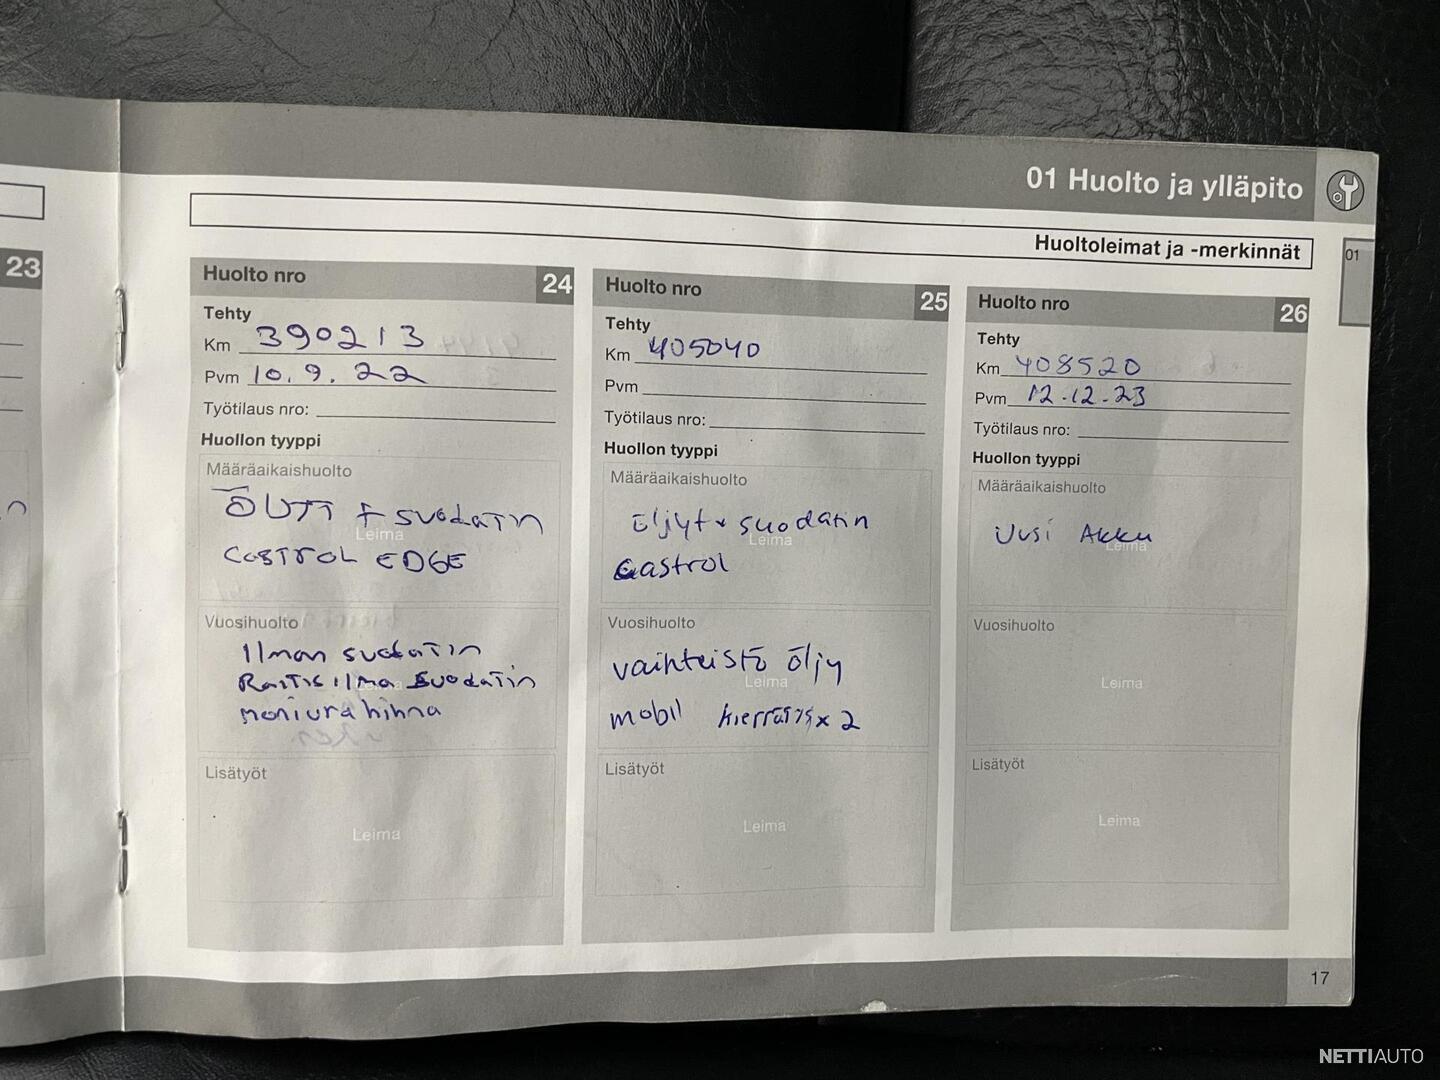 01 Huolto ja ylläpito
Huoltoleimat ja -merkinnät
01
23
Huolto nro 24
Tehty
Km 390213
Pvm 10.9.22
Työtilaus nro:
Huollon tyyppi
Määräaikaishuolto
+ suodatin
Leima
Castrol EDGE
Vuosihuolto
Ilman suodatin
Raitisilma suodatin
Leima
moniurahihna
Lisätyöt
Leima
Huolto nro 25
Tehty
Km 405040
Pvm
Työtilaus nro:
Huollon tyyppi
Määräaikaishuolto
öljyt + suodatin
Leima
Castrol
Vuosihuolto
vaihteisto öljy
Leima
mobil kierrätys x 2
Lisätyöt
Leima
Huolto nro 26
Tehty
Km 408520
Pvm 12.12.23
Työtilaus nro:
Huollon tyyppi
Määräaikaishuolto
Uusi Akku
Leima
Vuosihuolto
Leima
Lisätyöt
Leima
17
NETTIAUTO